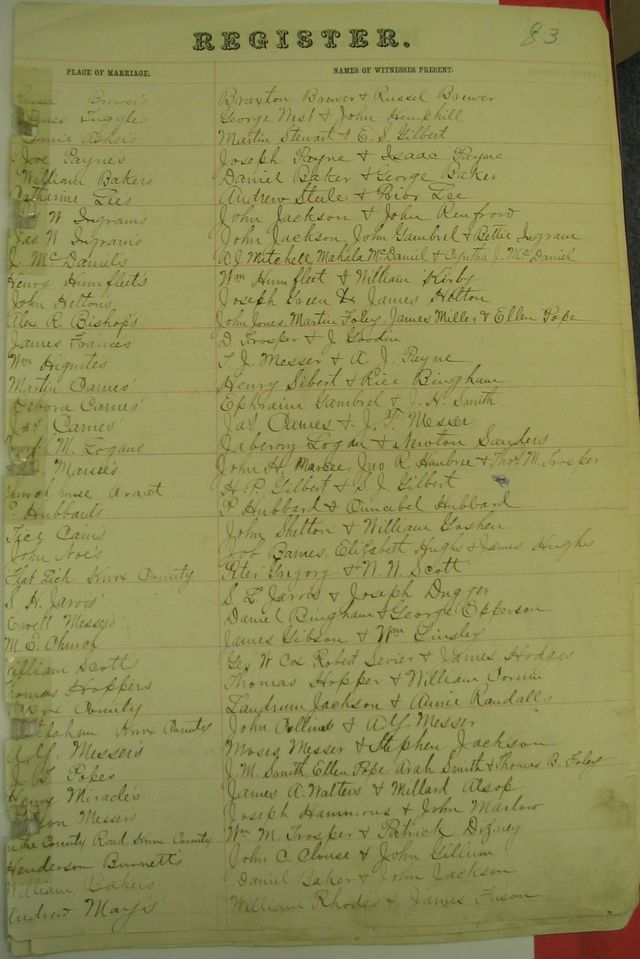 83
REGISTER.
PLACE OF MARRIAGE. NAMES OF WITNESSES PRESENT.
Brewer's Braxton Brewer & Russel Brewer
Tuggle's George West & John Hemphill
Asher's Martin Stewart & E. S. Gilbert
Joe Payne's Joseph Payne & Isaac Payne
William Baker's Daniel Baker & George Baker
Catharine Lee's Andrew Steele & Prior Lee
W Ingram's John Jackson & John Renfrow
Jas W Ingram's John Jackson, John Gambrel & Bettie Ingram
McDaniel's A. J. Mitchell, Mahala McDaniel & Cyntha J. McDaniel
Henry Humfleet's Wm Humfleet & William Kirby
John Helton's Joseph Green & James Helton
Alex R. Bishop's John Jones, Martin Foley, James Miller & Ellen Pope
James Frances D. Trosper & J. Goodin
Wm Hignite's T. J. Messer & A. J. Payne
Martin Carnes' Henry Sibert & Rice Bingham
Debora Carnes' Ephraim Gambrel & J. H. Smith
Jas Carnes' Jas Carnes & J. Messer
M. Logans Jaberry Logan & Newton Sanders
Marsee's John H. Marsee, Jno R. Hanbrie & Thos M. Trosper
Church house Ararat H. P. Gilbert & S. J. Gilbert
Hubbard's P. Hubbard & Hubbard
Carns John Shelton & William Goshen
John Noe's Job Barnes, Elizabeth Hughs & James Hughs
Flat Lick Knox County Peter Gregory & N. N. Scott
S. H. Jarvis' S. L. Jarvis & Joseph Dugger
Crett Messer's Daniel Bingham & George Epperson
M. E. Church James Gibson & Wm Tinsley
William Scott's Geo W Cox Robert Sevier & James Hodges
Thomas Hopper's Thomas Hopper & William Corum
Knox County Landrum Jackson & Annie Randalls
Knox County John Collins & A. Y. Messer
A. Y. Messer's Moses Messer & Stephen Jackson
Pope's J. M. Smith, Ellen Pope, Arah Smith & Thomas B. Foley
Henry Miracle's James A. Watters & Millard Alsop
Messer's Joseph Hammons & John Marlow
On the County Road, Knox County Wm M. Trosper & Patrick Dizney
Henderson Burnett's John C. Clouse & John Gillum
William Baker's Daniel Baker & John Jackson
Andrew Mays' William Rhodes & James Fuson